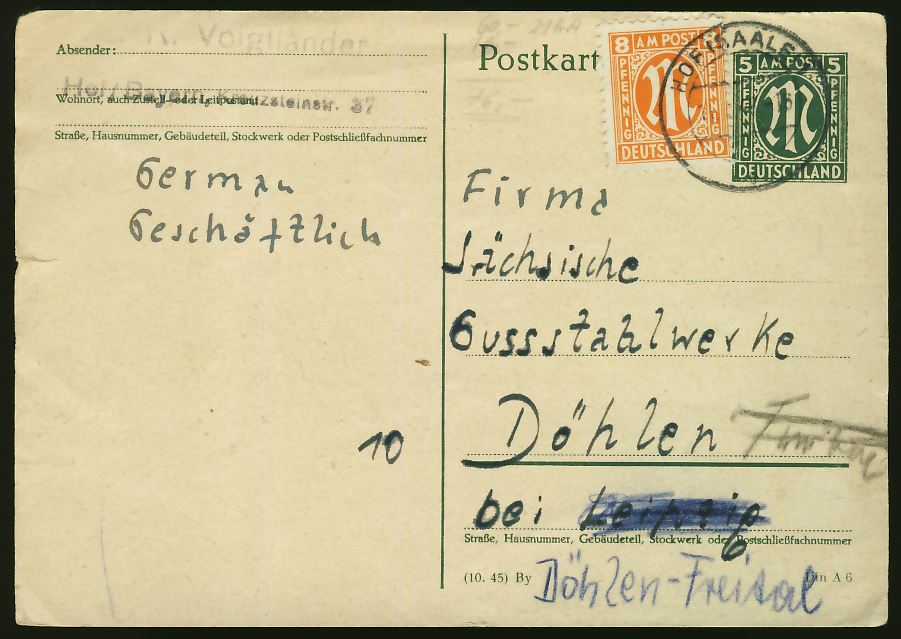 K. Voigtländer
Absender:
Hof/Bayern, Kreuzsteinstr. 37
Wohnort, auch Zustell- oder Leitpostamt
Straße, Hausnummer, Gebäudeteil, Stockwerk oder Postschließfachnummer
German
Geschäftlich
10
Postkarte
8 AM POST 8
PFENNIG PFENNIG
DEUTSCHLAND
HOF (SAALE)
5 AM POST 5
PFENNIG PFENNIG
DEUTSCHLAND
Firma
Sächsische
Gussstahlwerke
Döhlen
bei Leipzig
6
Straße, Hausnummer, Gebäudeteil, Stockwerk oder Postschließfachnummer
(10. 45) By
Din A 6
Döhlen-Freital